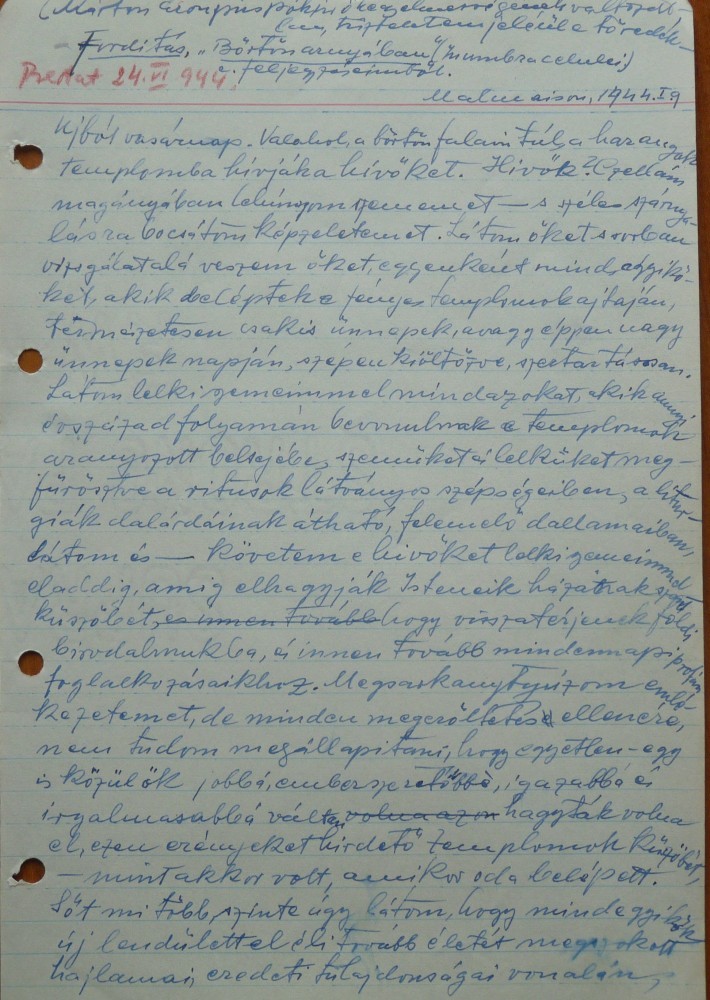 (Márton Áron püspök
tiszteletem jeléül e töredék-
Fordítás, „Börtön árnyában" (În umbra celulei)
c. feljegyzéseimből.
Predat 24.VI 944.
Malmaison, 1944.I.9
Ujból vasárnap. Valahol, a börtön falain túl, a harangok
templomba hívják a hívőket. Hívők? Czellám
magányában lehúnyom szememet — s széles szárnya-
lásra bocsátom képzeletemet. Látom őket s sorban
vizsgálat alá veszem őket, egyenként mind, egyikő-
ket, akik beléptek e fényes templomok ajtaján,
természetesen csakis ünnepek, avagy éppen nagy
ünnepek napján, szépen kiöltözve, szertartásosan.
Látom lelki szemeimmel mindazokat, akik annyi
évszázad folyamán bevonulnak e templomok
aranyozott belsejébe, szemüket és lelküket meg-
fürösztve a ritusok látványos szépségeiben, a litur-
giák dalárdáinak átható, felemelő dallamaiban,
Látom és — követem e hívőket lelki szemeimmel
eladdig, amig elhagyják Isteneik házának szent
küszöbét, es innen tovább hogy visszatérjenek földi
birodalmukba, és innen tovább mindennapi profán
foglalkozásaikhoz. Megsarkantyúzom emlé-
kezetemet, de minden megerőltetés ellenére,
nem tudom megállapitani, hogy egyetlen-egy
is közülök jobbá, emberszeretőbbé, igazabbá és
irgalmasabbá váltan volna azon hagyták volna
el, ezen erényeket hirdető templomok küszöbét,
— mint akkor volt, amikor oda belépett.
Sőt mi több, szinte úgy látom, hogy mindegyikök
új lendülettel éli tovább életét megszokott
hajlamai, eredeti tulajdonságai vonalán,